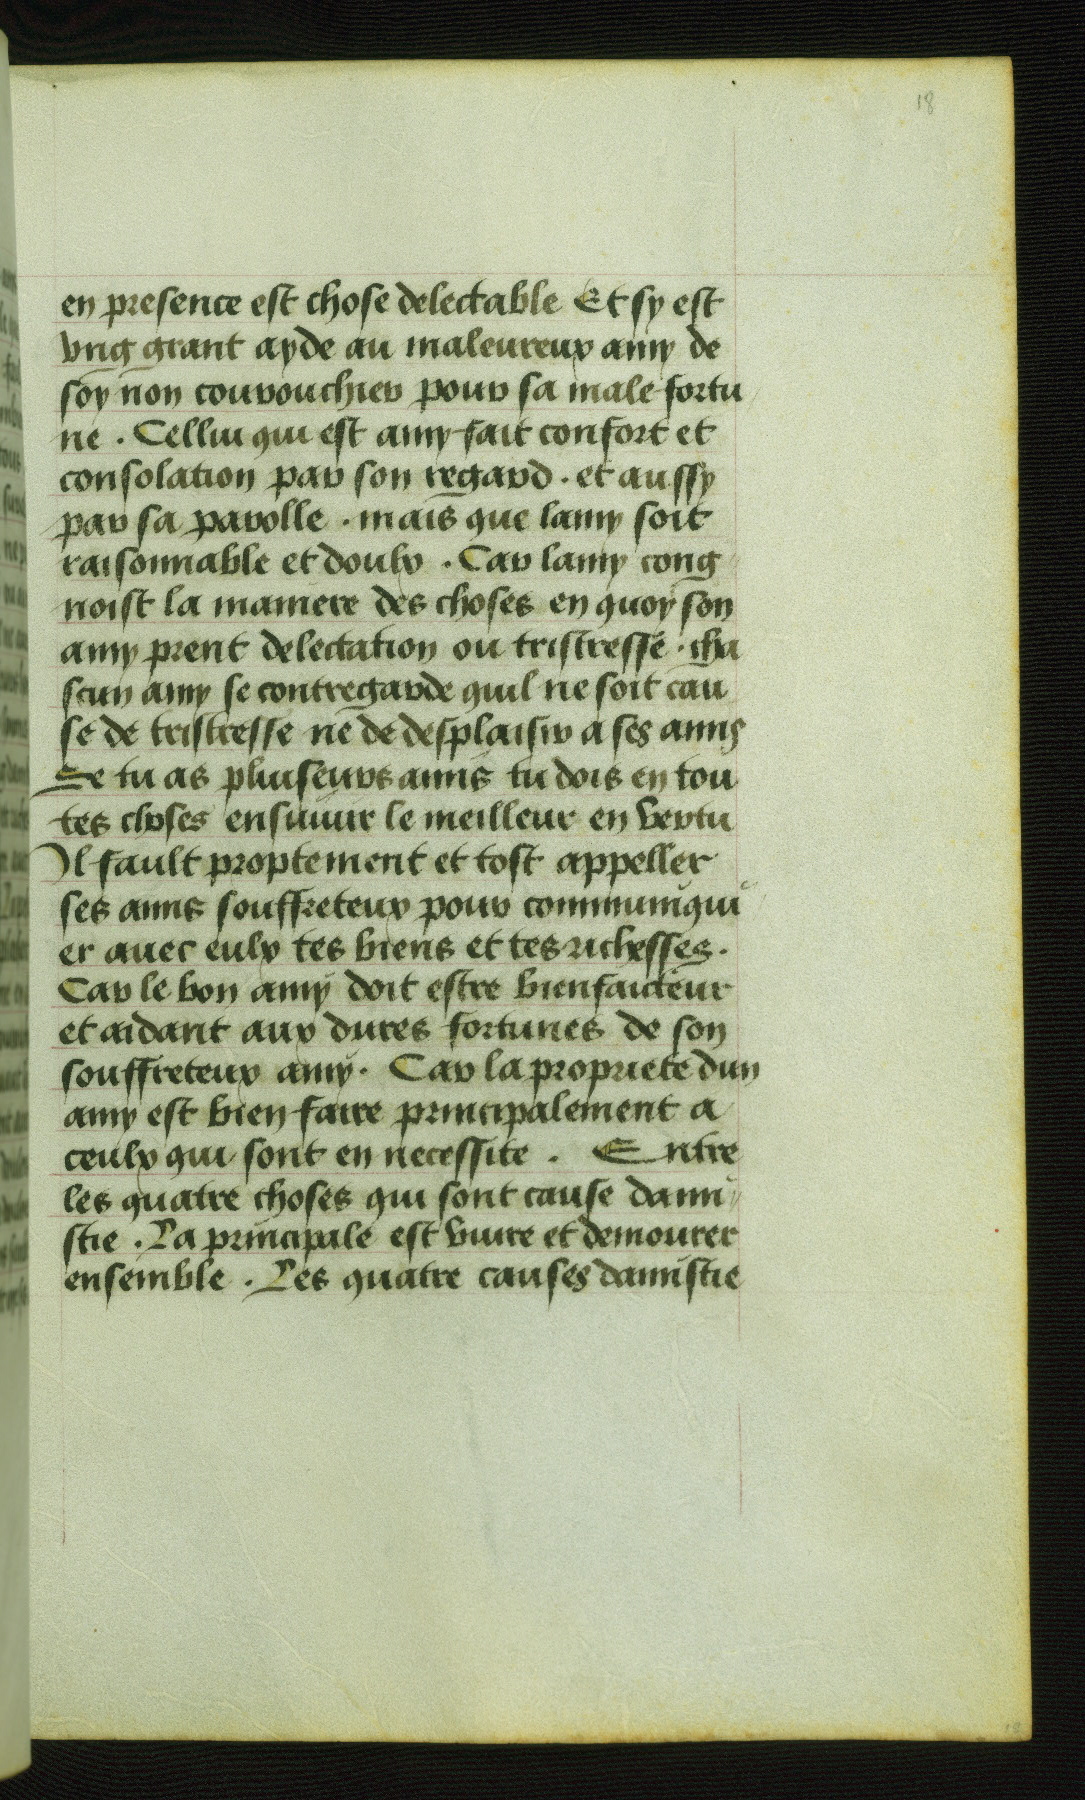 18
en presence est chose delectable Et sy est
vng grant ayde au maleureux amy de
soy non courouchier pour sa male fortu
ne . Cellui qui est amy fait confort et
consolation par son regard . et aussy
par sa parolle . mais que lamy soit
raisonnable et doulx . Car lamy cong
noist la maniere des choses en quoy son
amy prent delectation ou tristresse . cha
scun amy se contregarde quil ne soit cau
se de tristresse ne de desplaisir a ses amis
Se tu as pluiseurs amis tu dois en tou
tes choses ensuiuir le meilleur en vertu
Il fault proptement et tost appeller
ses amis souffreteux pour communiqui
er auec eulx tes biens et tes richesses .
Car le bon amy doit estre bienfaicteur
et aidant aux dures fortunes de son
souffreteux amy . Car la propriete dun
amy est bien faire principalement a
ceulx qui sont en necessite . Entre
les quatre choses qui sont cause dami
stie . La principale est viure et demourer
ensemble . Les quatre causes damistie